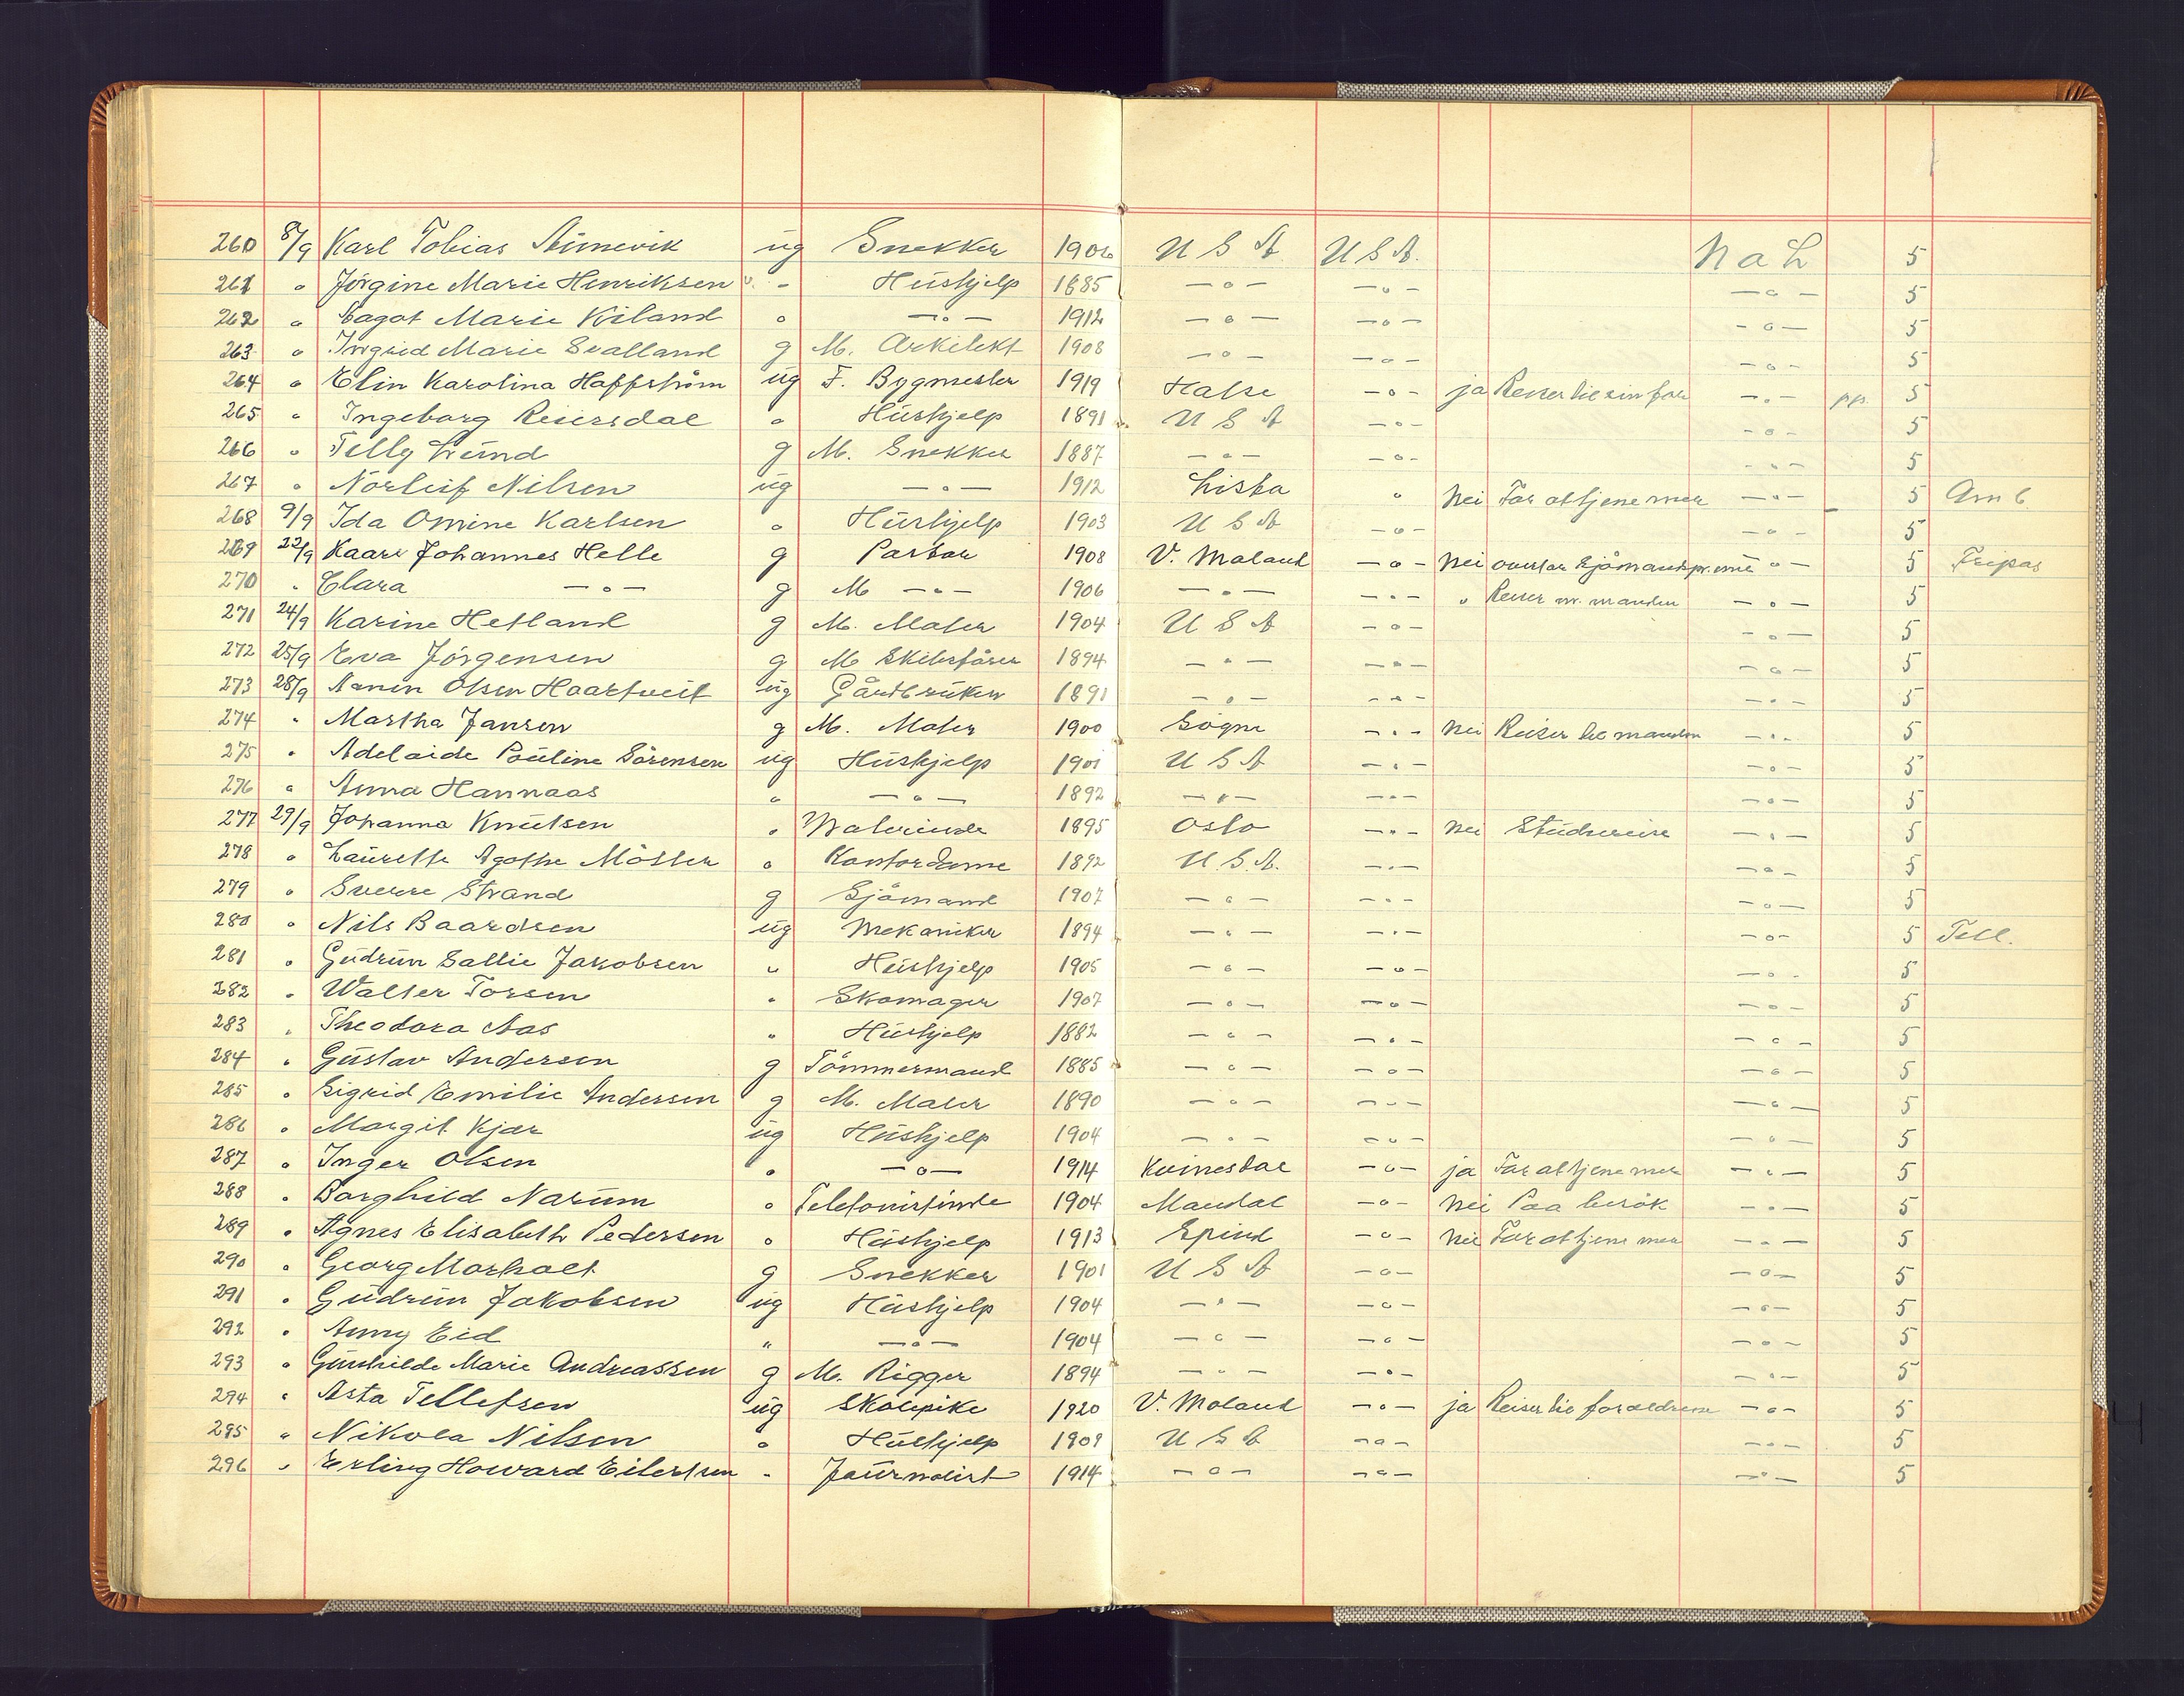 260 8/9 Karl Tobias ug Snekker 1902 U S A U S A. N a L 5
261 " Jörgine Marie Henriksen " Hushjelp 1885 —"— —"— —"— 5
262 " Dagot Marie Kiland " —"— 1912 —"— —"— —"— 5
263 " Ingrid Marie Svalland g M. Arkitekt 1908 —"— —"— —"— 5
264 " Elin Karolina Haffström ug F. Bygmester 1919 Halse —"— ja Reiser til sin far —"— pp. 5
265 " Ingeborg Reiersdal " Hushjelp 1891 U S A —"— —"— 5
266 " Telly Lund g M. Snekker 1887 —"— —"— —"— 5
267 " Norleif Nilsen ug —"— 1912 Lista " Nei For at tjene mer —"— 5 Am b
268 9/9 Ida Omine Karlsen " Hushjelp 1903 U S A —"— —"— 5
269 22/9 Kaare Johannes Helle g Pastor 1908 V. Moland —"— Nei overtar Sjömandspr. —"— 5 Fripas
270 " Clara —"— g M —"— 1906 —"— —"— " Reiser m. manden —"— 5
271 24/9 Karine Hetland g M. Maler 1904 U S A —"— —"— 5
272 25/9 Eva Jörgensen g M Skibsförer 1894 —"— —"— —"— 5
273 28/9 Aanen Olsen Haartveit ug Gårdbruker 1891 —"— —"— —"— 5
274 " Martha Jansen g M. Maler 1900 Sögne —"— Nei Reiser til manden —"— 5
275 " Adelaide Pauline Sörensen ug Hushjelp 1901 U S A —"— —"— 5
276 " Anna Hannaas " —"— 1892 —"— —"— —"— 5
277 29/9 Johanna Knutsen " Malerinde 1895 Oslo —"— Nei Studiereise —"— 5
278 " Laurette Agathe Möller " Kontordame 1892 U. S. A. —"— —"— 5
279 " Sverre Strand g Sjömand 1907 —"— —"— —"— 5
280 " Nils Baardsen ug Mekaniker 1894 —"— —"— —"— 5 Tell.
281 " Gudrun Sallie Jakobsen " Hushjelp 1905 —"— —"— —"— 5
282 " Walter Torsen " Skomager 1907 —"— —"— —"— 5
283 " Theodora Aas " Hushjelp 1882 —"— —"— —"— 5
284 " Gustav Andersen g Tömmermand 1885 —"— —"— —"— 5
285 " Sigrid Emilie Andersen g M. Maler 1890 —"— —"— —"— 5
286 " Margit Kjær ug Hushjelp 1904 —"— —"— —"— 5
287 " Inger Olsen " —"— 1914 Kvinesdal —"— ja For at tjene mer —"— 5
288 " Borghild Narum " Telefonistinde 1904 Mandal —"— Nei Paa besök —"— 5
289 " Agnes Elisabeth Pedersen " Hushjelp 1913 Spind —"— Nei For at tjene mer —"— 5
290 " Georg Morholt g Snekker 1901 U S A —"— —"— 5
291 " Gudrun Jakobsen ug Hushjelp 1904 —"— —"— —"— 5
292 " Anny Eid " —"— 1904 —"— —"— —"— 5
293 " Gunhilde Marie Andreassen g M. Rigger 1894 —"— —"— —"— 5
294 " Asta Tellefsen ug Skolepike 1920 V. Moland —"— ja Reiser til forældrene —"— 5
295 " Nikola Nilsen " Hushjelp 1909 U S A —"— —"— 5
296 " Erling Howard Eilertsen " Journalist 1914 —"— —"— —"— 5